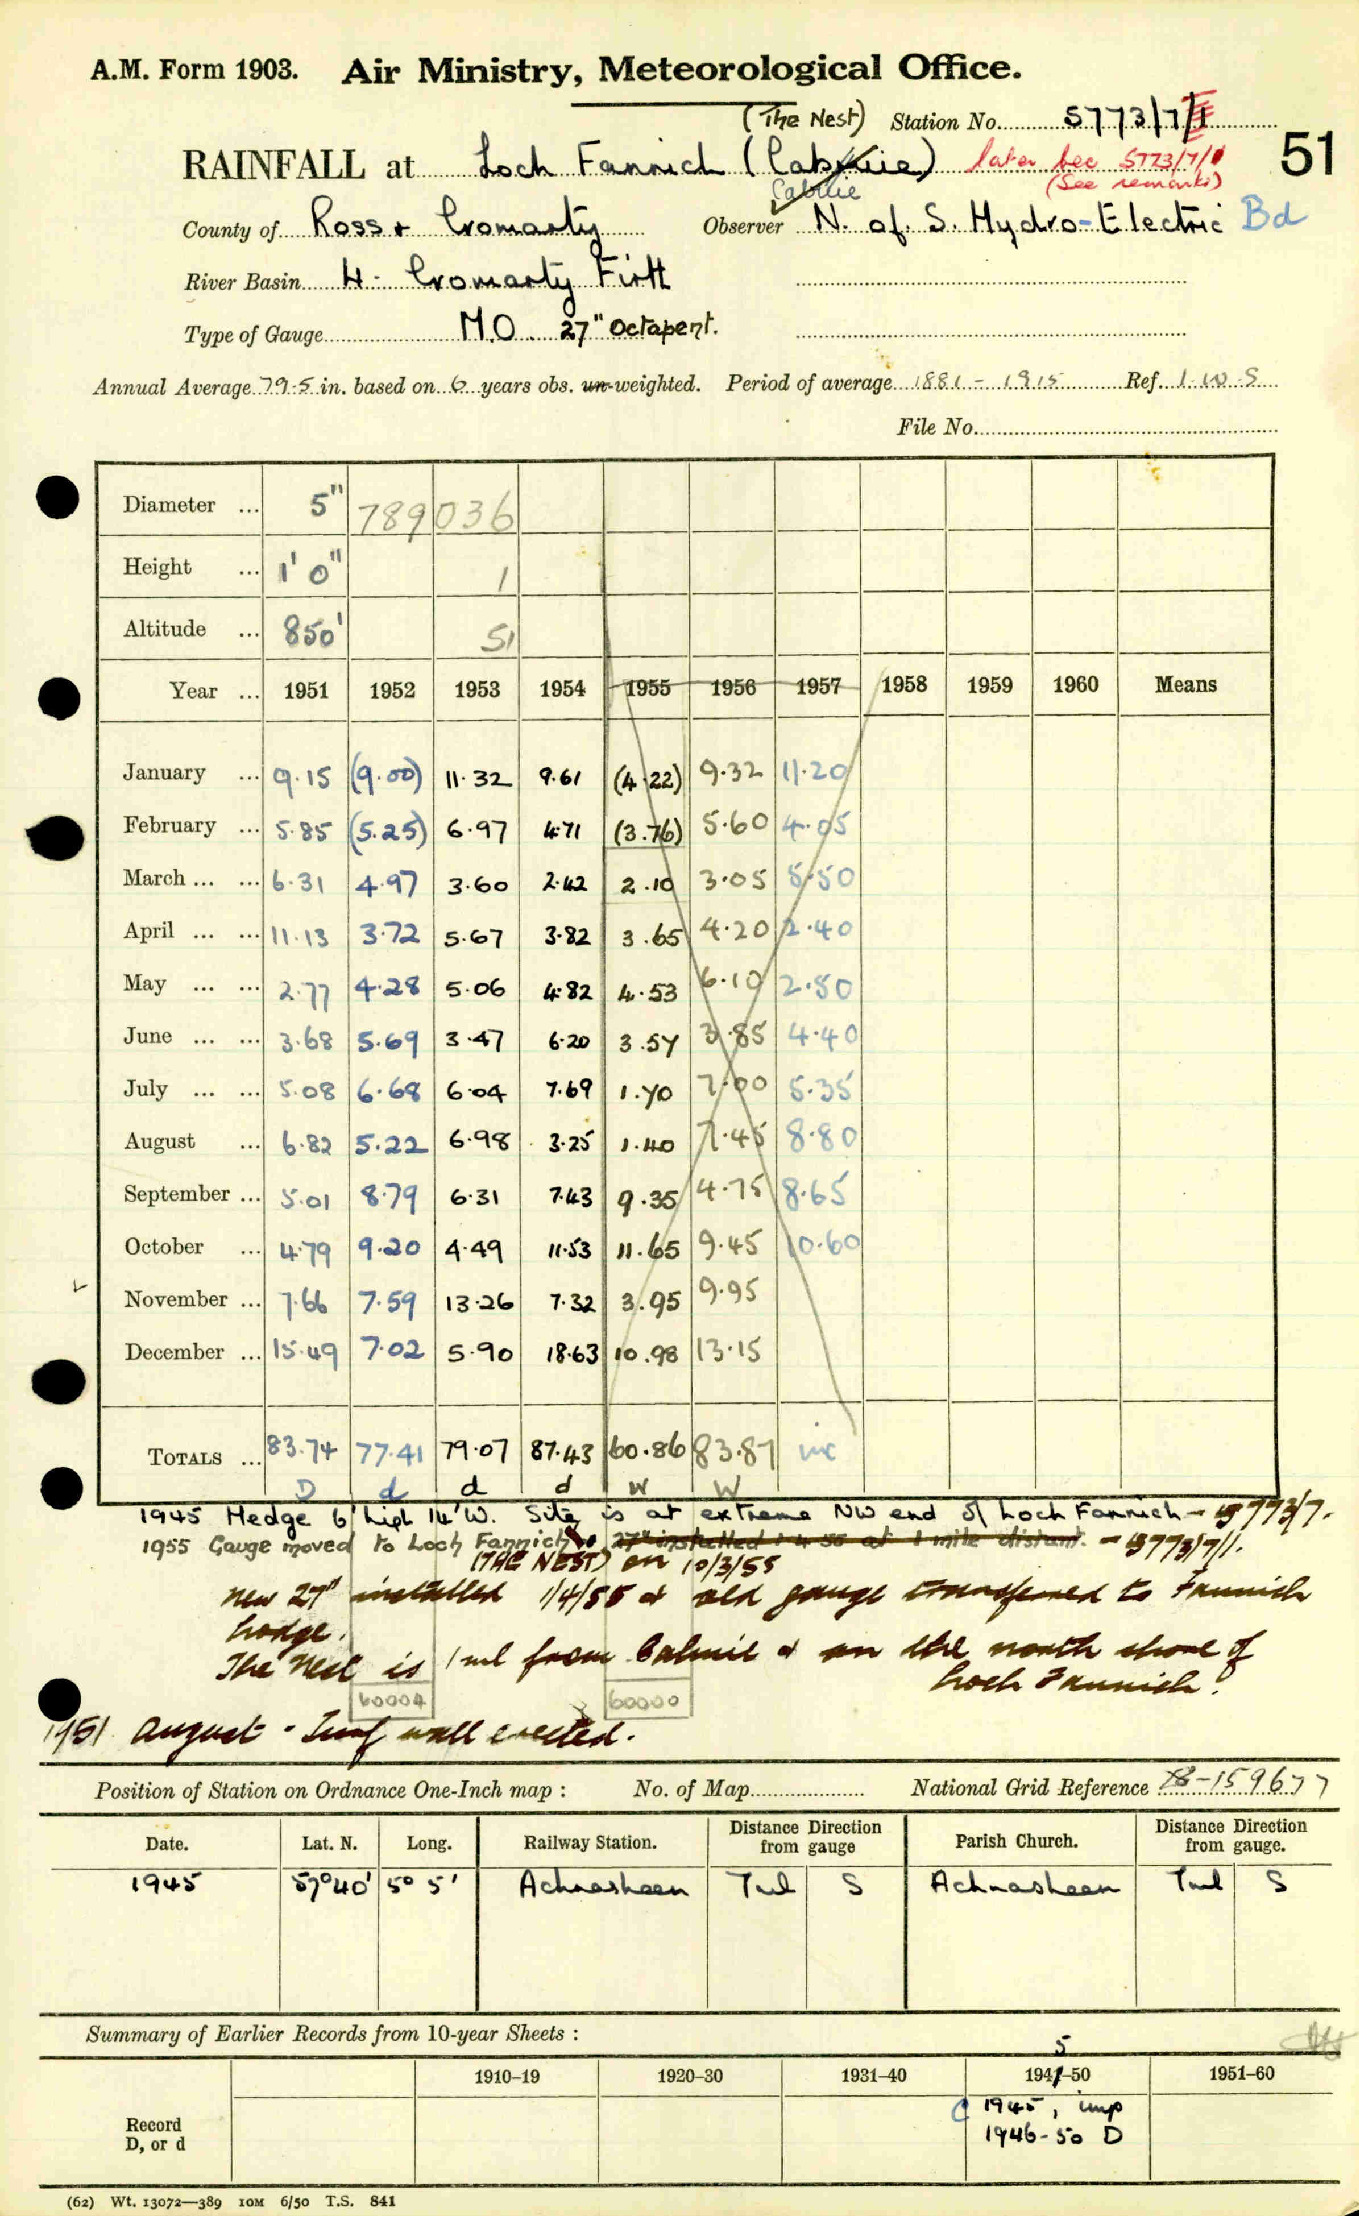 A.M. Form 1903. Air Ministry, Meteorological Office.
(The Nest) Station No. 5773/7/1
RAINFALL at Loch Fannich (Cabuie) later bec 5773/7/1 51
Cabuie (See remarks)
County of Ross & Cromarty Observer N. of. S. Hydro-Electric Bd
River Basin 4. Cromarty Firth
Type of Gauge M.O. 27" Octapent.
Annual Average 79.5 in. based on 6 years obs. un-weighted. Period of average 1881 - 1915 Ref. I.W.S
File No.
Diameter ... 5" 789 036
Height ... 1' 0" 1
Altitude ... 850' 51
Year ... 1951 1952 1953 1954 1955 1956 1957 1958 1959 1960 Means
January ... 9.15 (9.00) 11.32 9.61 (4.22) 9.32 11.20
February ... 5.85 (5.25) 6.97 4.71 (3.76) 5.60 4.05
March ... ... 6.31 4.97 3.60 2.42 2.10 3.05 5.50
April ... ... 11.13 3.72 5.67 3.82 3.65 4.20 2.40
May ... ... 2.77 4.28 5.06 4.82 4.53 6.10 2.80
June ... ... 3.68 5.69 3.47 6.20 3.57 3.85 4.40
July ... ... 5.08 6.68 6.04 7.69 1.70 7.00 5.35
August ... 6.82 5.22 6.98 3.25 1.40 7.45 8.80
September ... 5.01 8.79 6.31 7.43 9.35 4.75 8.65
October ... 4.79 9.20 4.49 11.53 11.65 9.45 10.60
November ... 7.66 7.59 13.26 7.32 3.95 9.95
December ... 15.49 7.02 5.90 18.63 10.98 13.15
TOTALS ... 83.74 77.41 79.07 87.43 60.86 83.87 inc
D d d d W W
1945 Hedge 6' high 14' W. Site is at extreme NW end of Loch Fannich - 5773/7.
1955 Gauge moved to Loch Fannich 27" installed 1.4.55 at 1 mile distant. - 5773/7/1.
(THE NEST) on 10/3/55
New 27" installed 1/4/55 & old gauge transferred to Fannich
Lodge.
The Nest is 1 ml from Cabuie & on the north shore of
Loch Fannich.
60004 60000
1951 August - Turf wall erected.
Position of Station on Ordnance One-Inch map : No. of Map National Grid Reference 28-159677
Date. Lat. N. Long. Railway Station. Distance Direction from gauge Parish Church. Distance Direction from gauge.
1945 57°40' 5° 5' Achnasheen 7ml S Achnasheen 7ml S
Summary of Earlier Records from 10-year Sheets :
5
1910–19 1920–30 1931–40 1941–50 1951–60
Record
D, or d
C 1945, imp
1946-50 D
(62) Wt. 13072—389 10M 6/50 T.S. 841